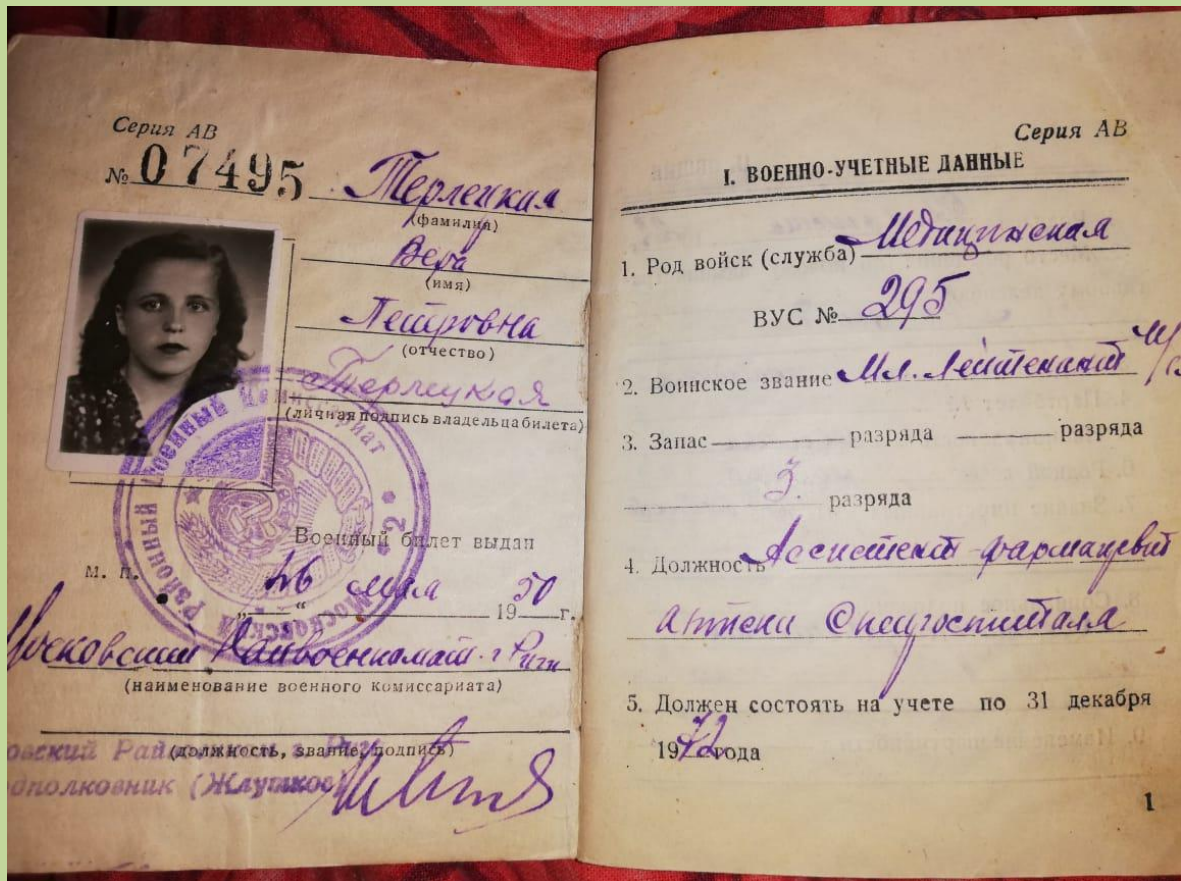 Серия АВ
№ 07495
Терлецкая
(фамилия)
Вера
(имя)
Петровна
(отчество)
Терлецкая
(личная подпись владельца билета)
Районный Военный Комиссариат
Московский
2
Военный билет выдан
М. П.
"16" мая 1950 г.
Московский Райвоенкомат г. Риги
(наименование военного комиссариата)
(должность, звание, подпись)
овский Рай
дполковник
Серия АВ
I. ВОЕННО-УЧЕТНЫЕ ДАННЫЕ
1. Род войск (служба) Медицинская
ВУС № 295
2. Воинское звание Мл. лейтенант м/с
3. Запас разряда разряда
3. разряда
4. Должность Ассистент-фармацевт
аптеки Спецгоспиталя
5. Должен состоять на учете по 31 декабря
1972 года
1